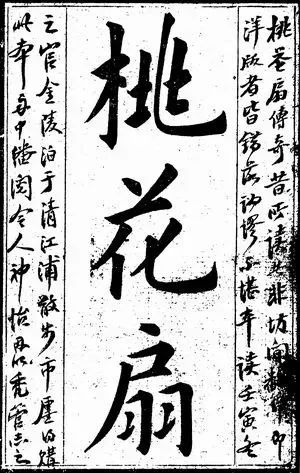 桃花扇傳奇昔所讀非坊間即
洋版者皆錯落訛謬不堪卒讀壬寅冬
桃花扇
之官金陵泊于清江浦散步市廛得購
此本舟中繙閱令人神怡因以禿管志之